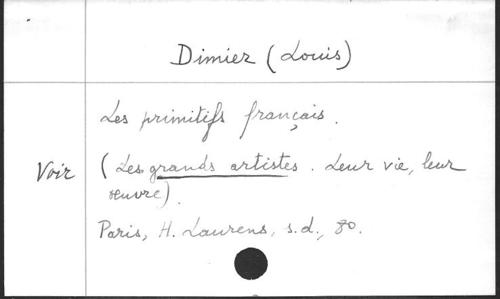 Dimier (Louis)
Les primitifs français.
Voir
(Les grands artistes. Leur vie, leur
œuvre).
Paris, H. Laurens, s.d., 8o.